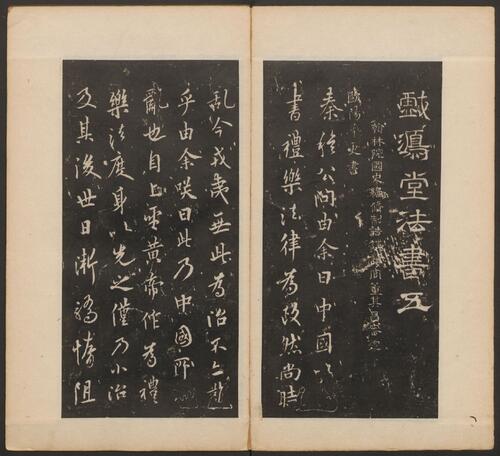 戲鴻堂法書五
翰林院國史編脩制誥講讀官董其昌審定
歐陽率更書
秦穆公問由余曰中國以
書禮樂法律為政然尚時
亂今戎夷無此為治不亦難
乎由余咲曰此乃中國所
亂也自上聖黃帝作為禮
樂法度身以先之僅乃小治
及其後世日漸驕惰阻